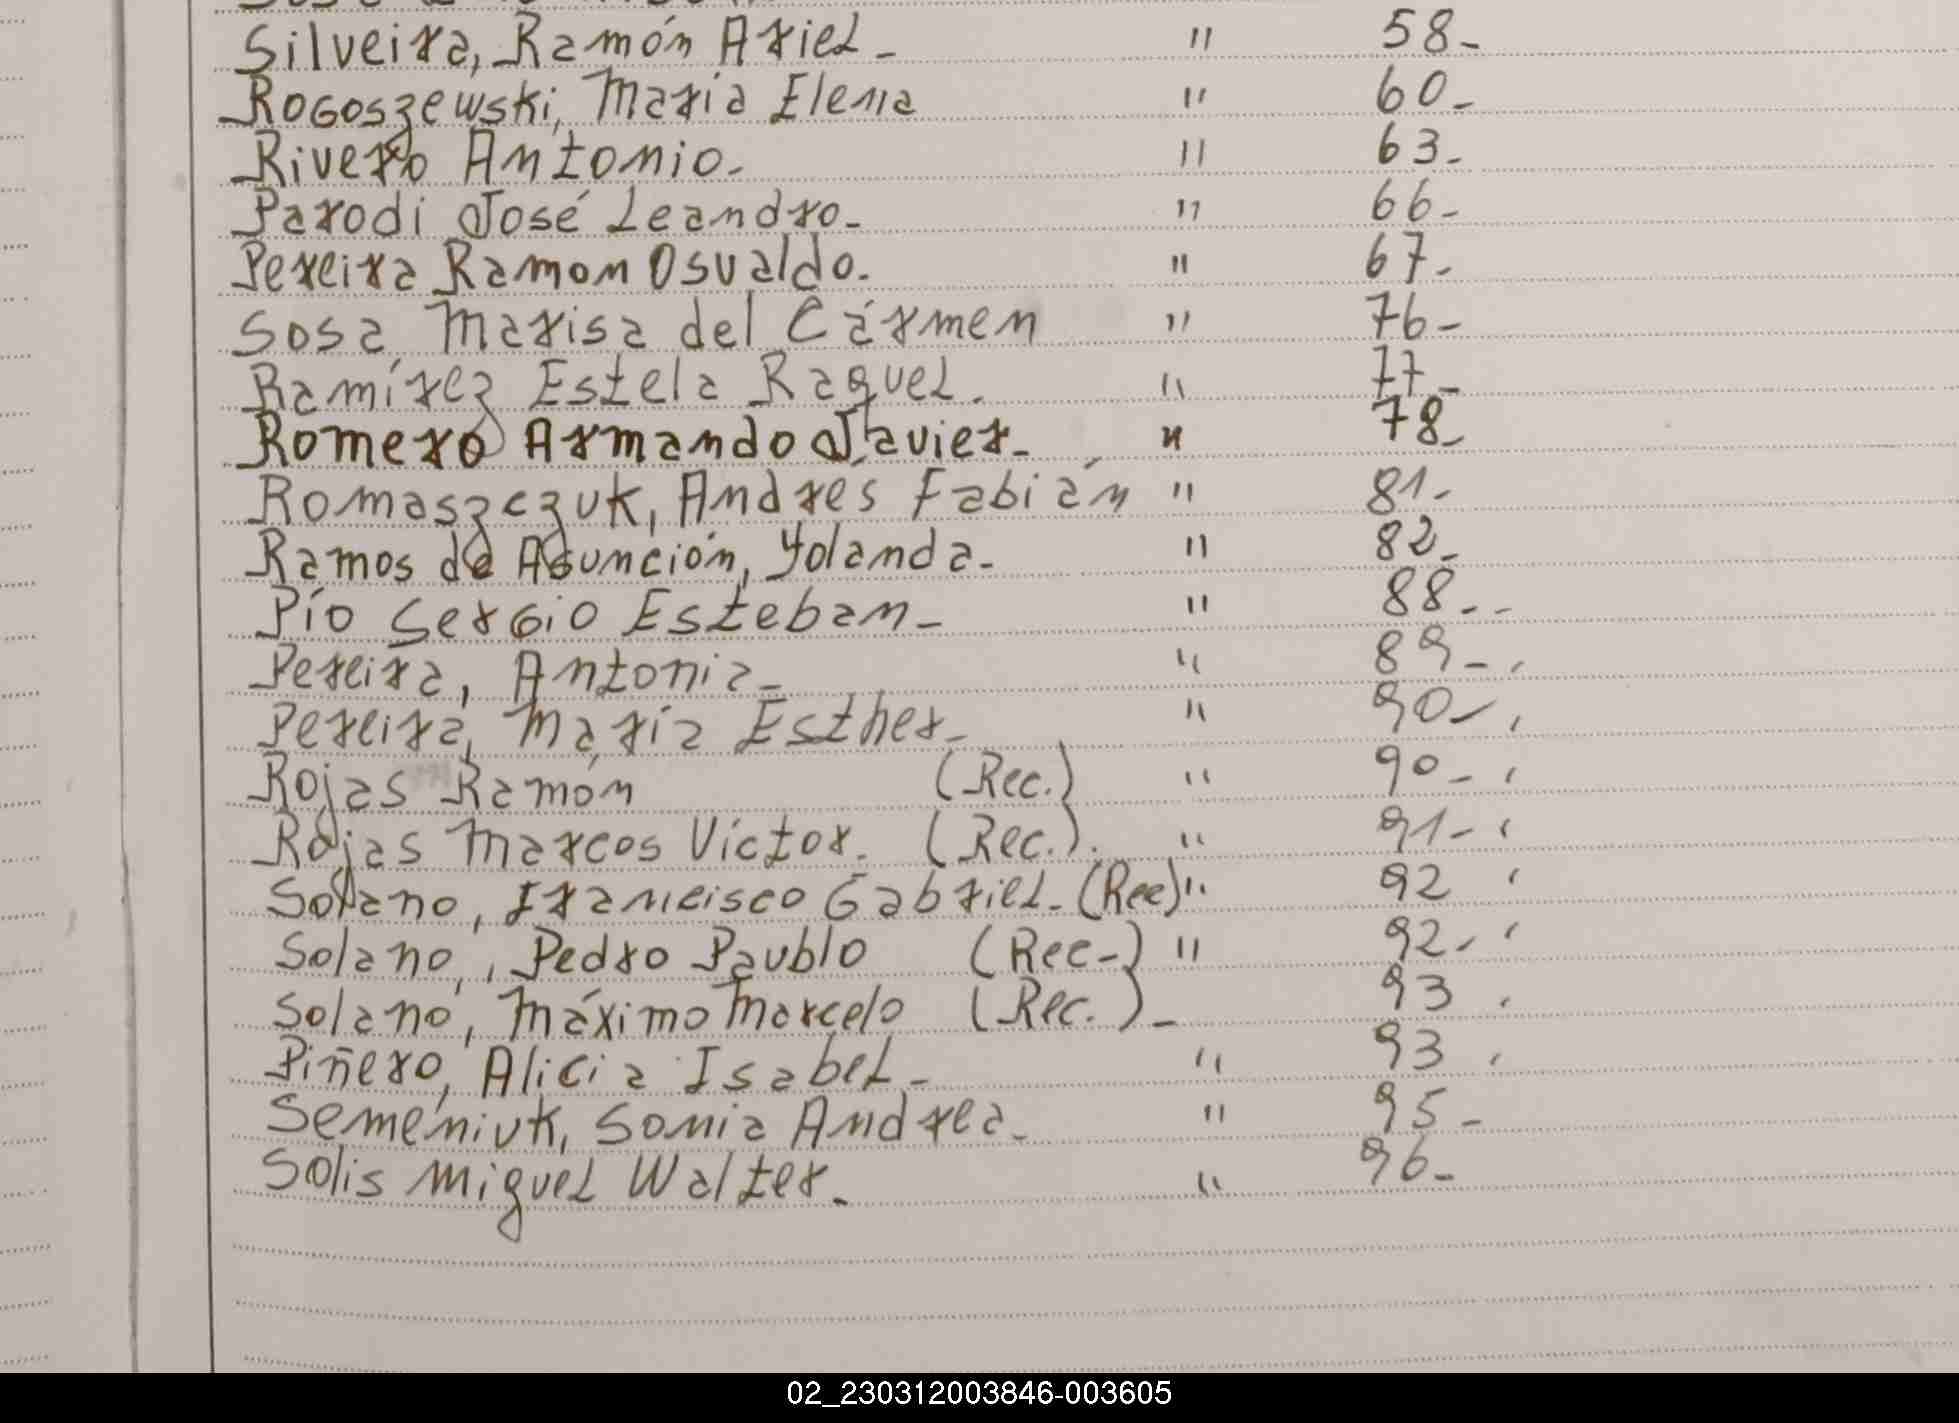 Silveira, Ramón Ariel - " 58-
Rogoszewski, Maria Elena " 60-
Rivero Antonio. " 63-
Parodi José Leandro- " 66-
Pereira Ramon Osvaldo. " 67-
Sosa Marisa del Cármen " 76-
Ramírez Estela Raquel. " 77-
Romero Armando Javier- " 78-
Romaszczuk, Andrés Fabián " 81-
Ramos de Asunción, Yolanda- " 82-
Pío Sergio Esteban- " 88--
Pereira, Antonia- " 89-
Pereira, María Esther- " 90-
Rojas Ramón (Rec.) " 90-
Rojas Marcos Víctor. (Rec.). " 91-
Solano, Francisco Gabriel-(Rec) " 92
Solano, Pedro Paublo (Rec-) " 92-
Solano, Máximo Marcelo (Rec.)- 93
Piñero, Alicia Isabel- " 93
Semeniuk, Sonia Andrea- " 95-
Solis Miguel Walter- " 96-
02_230312003846-003605